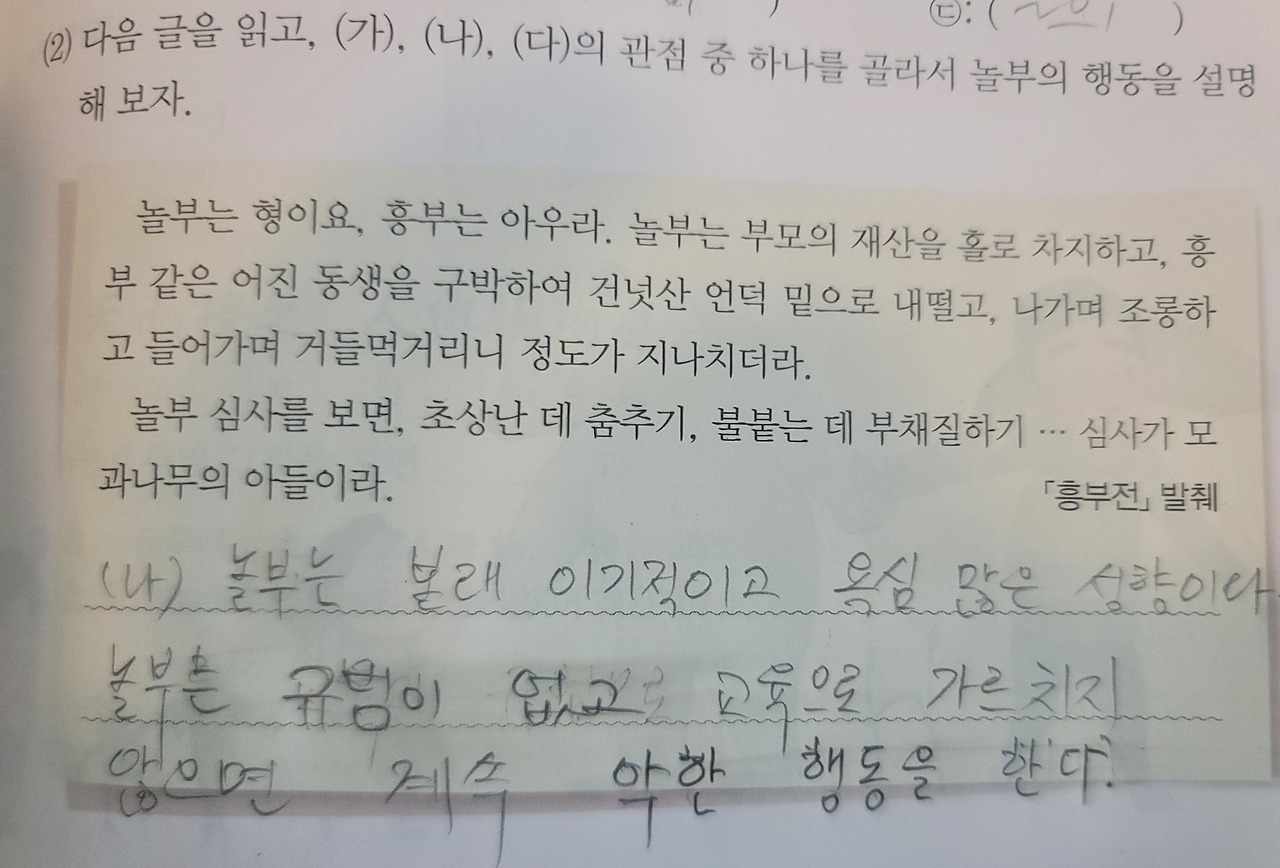 ㉢: (
)
(2) 다음 글을 읽고, (가), (나), (다)의 관점 중 하나를 골라서 놀부의 행동을 설명
해 보자.
놀부는 형이요, 흥부는 아우라. 놀부는 부모의 재산을 홀로 차지하고, 흥
부 같은 어진 동생을 구박하여 건넛산 언덕 밑으로 내떨고, 나가며 조롱하
고 들어가며 거들먹거리니 정도가 지나치더라.
놀부 심사를 보면, 초상난 데 춤추기, 불붙는 데 부채질하기 … 심사가 모
과나무의 아들이라.
「흥부전」 발췌
(나) 놀부는 본래 이기적이고 욕심 많은 성향이다
놀부는 규범이 없고 교육으로 가르치지
않으면 계속 악한 행동을 한다.